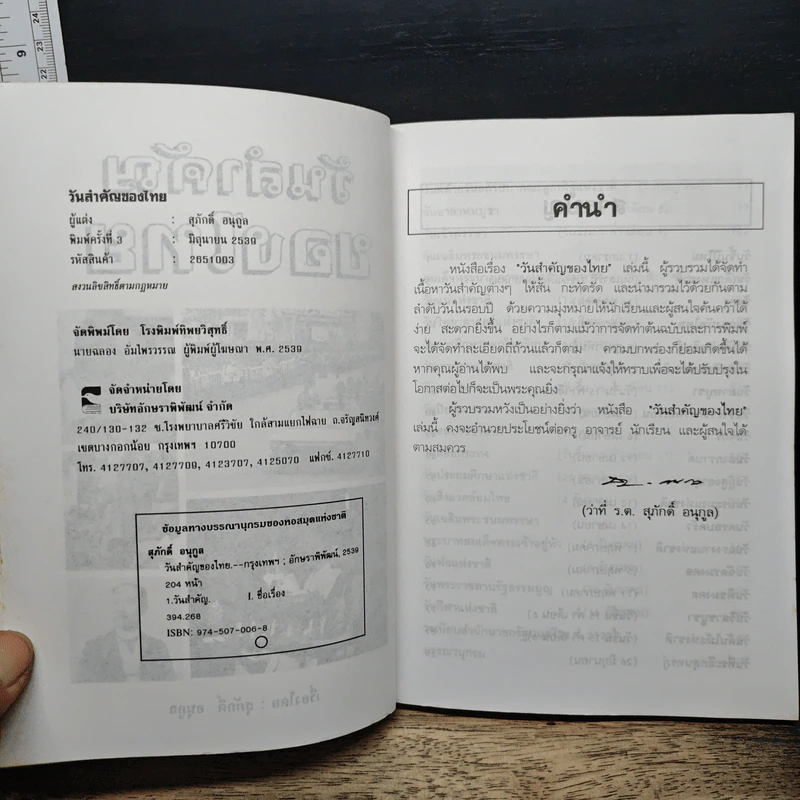 วันสำคัญของไทย
ผู้แต่ง : สุภักดิ์ อนุกูล
พิมพ์ครั้งที่ 3 : มิถุนายน 2539
รหัสสินค้า : 2651003
สงวนลิขสิทธิ์ตามกฎหมาย
จัดพิมพ์โดย โรงพิมพ์ทิพยวิสุทธิ์
นายฉลอง อัมไพรวรรณ ผู้พิมพ์ผู้โฆษณา พ.ศ. 2539
จัดจำหน่ายโดย
บริษัทอักษราพิพัฒน์ จำกัด
240/130-132 ซ.โรงพยาบาลศรีวิชัย ใกล้สามแยกไฟฉาย ถ.จรัญสนิทวงศ์
เขตบางกอกน้อย กรุงเทพฯ 10700
โทร. 4127707, 4127709, 4123707, 4125070 แฟกซ์. 4127710
ข้อมูลทางบรรณานุกรมของหอสมุดแห่งชาติ
สุภักดิ์ อนุกูล
วันสำคัญของไทย.--กรุงเทพฯ ; อักษราพิพัฒน์, 2539
204 หน้า
1.วันสำคัญ. I. ชื่อเรื่อง
394.268
ISBN: 974-507-006-8
คำนำ
หนังสือเรื่อง "วันสำคัญของไทย" เล่มนี้ ผู้รวบรวมได้จัดทำ
เนื้อหาวันสำคัญต่างๆ ให้สั้น กะทัดรัด และนำมารวมไว้ด้วยกันตาม
ลำดับวันในรอบปี ด้วยความมุ่งหมายให้นักเรียนและผู้สนใจค้นคว้าได้
ง่าย สะดวกยิ่งขึ้น อย่างไรก็ตามแม้ว่าการจัดทำต้นฉบับและการพิมพ์
จะได้จัดทำละเอียดถี่ถ้วนแล้วก็ตาม ความบกพร่องก็ย่อมเกิดขึ้นได้
หากคุณผู้อ่านได้พบ และจะกรุณาแจ้งให้ทราบเพื่อจะได้ปรับปรุงใน
โอกาสต่อไปก็จะเป็นพระคุณยิ่ง
ผู้รวบรวมหวังเป็นอย่างยิ่งว่า หนังสือ "วันสำคัญของไทย"
เล่มนี้ คงจะอำนวยประโยชน์ต่อครู อาจารย์ นักเรียน และผู้สนใจได้
ตามสมควร
(ว่าที่ ร.ต. สุภักดิ์ อนุกูล)